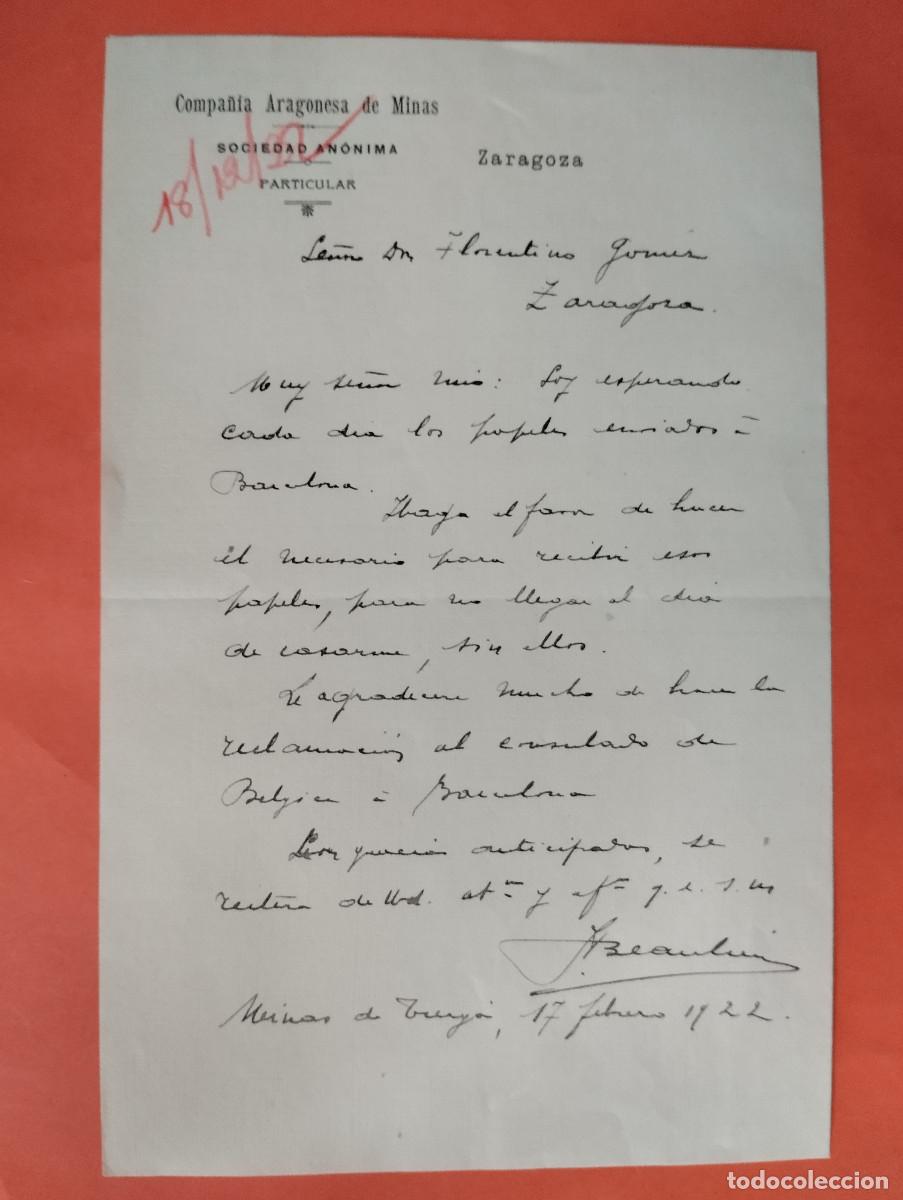 Compañia Aragonesa de Minas
SOCIEDAD ANÓNIMA
PARTICULAR
Zaragoza
18/12/22
Señor Dn Florentino Gomez
Zaragoza.
Muy señor mio: Soy esperando
cada dia los papeles enviados à
Barcelona.
Haga el favor de hacer
el necesario para recibir esos
papeles, para no llegar al dia
de casarme, sin ellos.
Le agradecere mucho de hacer la
reclamacion al consulado de
Belgica à Barcelona
Con gracias anticipadas, se
reitera de Ud. atᵐ y afᵐ q. e. s. m
Minas de, 17 febrero 1922.
todocoleccion